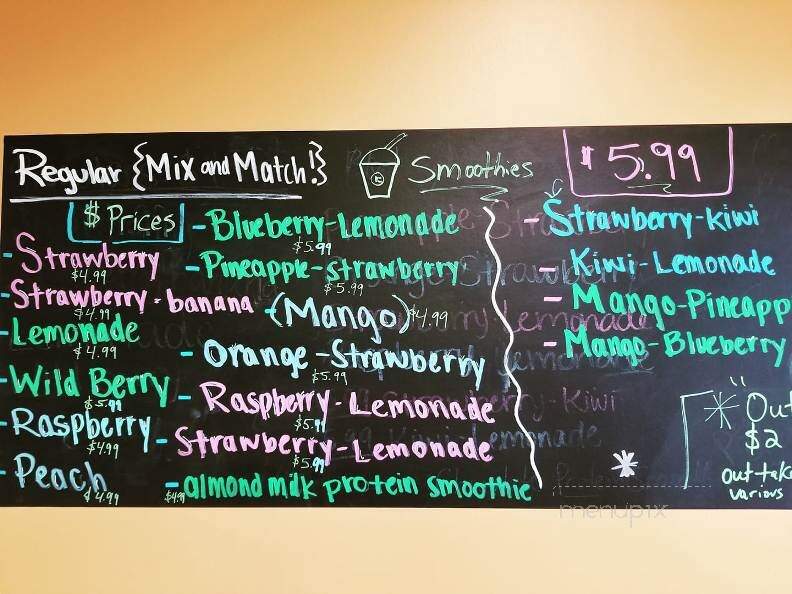 Regular {Mix and Match!}
Smoothies
$5.99
$ Prices
- Strawberry
$4.99
- Strawberry-banana
$4.99
- Lemonade
$4.99
- Wild Berry
$5.99
- Raspberry
$4.99
- Peach
$4.99
- Blueberry-Lemonade
$5.99
- Pineapple-strawberry
$5.99
- (Mango) $4.99
- Orange-Strawberry
$5.99
- Raspberry-Lemonade
$5.99
- Strawberry-Lemonade
$5.99
- almond milk protein smoothie
$4.99
- Strawberry-kiwi
- Kiwi-Lemonade
- Mango-Pineapp
- Mango-Blueberry
" * Out
$2
out-take
various
*
menupix